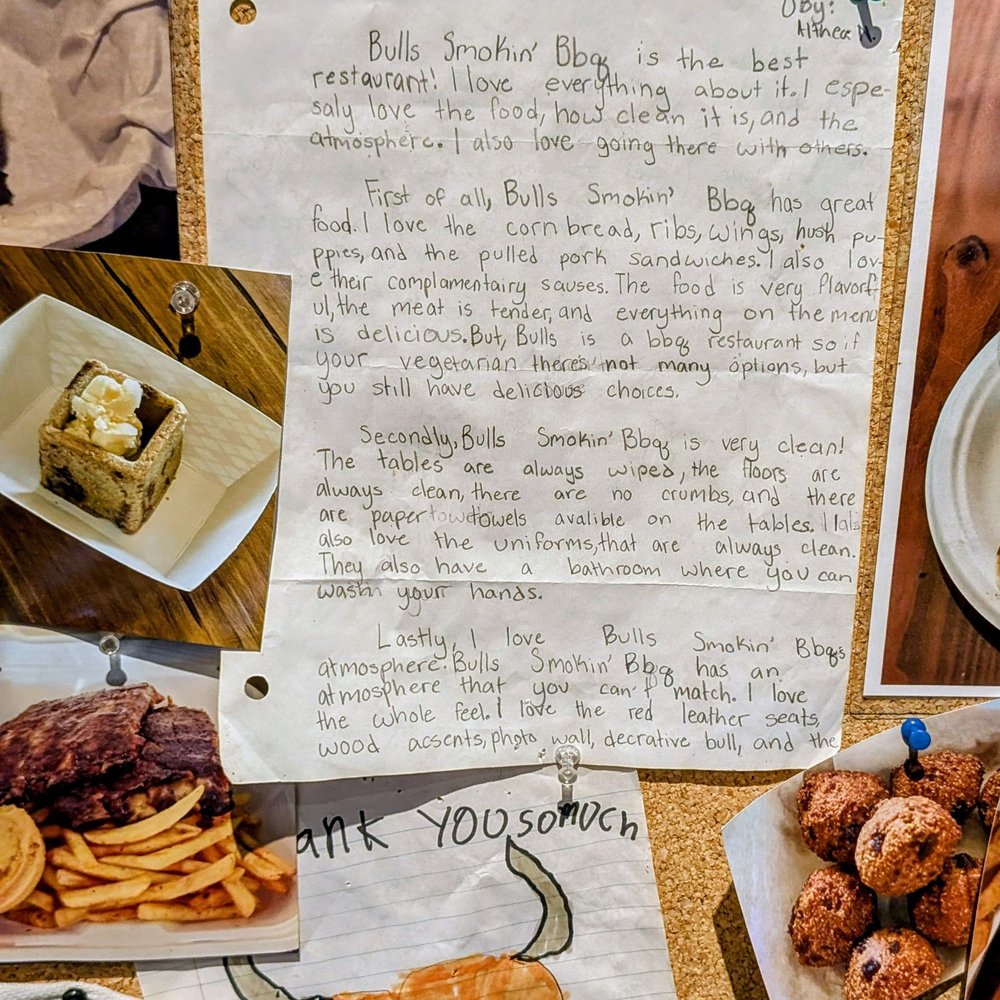 By:
Althea W.
Bulls Smokin' Bbq is the best
restaurant! I love everything about it. I espe-
saly love the food, how clean it is, and the
atmosphere. I also love going there with others.
First of all, Bulls Smokin' Bbq has great
food. I love the corn bread, ribs, wings, hush pu-
ppies, and the pulled pork sandwiches. I also lov-
e their complamentairy sauses. The food is very flavorf
ul, the meat is tender, and everything on the menu
is delicious. But, Bulls is a bbq restaurant so if
your vegetarian there's not many options, but
you still have delicious choices.
Secondly, Bulls Smokin' Bbq is very clean!
The tables are always wiped, the floors are
always clean, there are no crumbs, and there
are paper towels avalible on the tables. I
also love the uniforms, that are always clean.
They also have a bathroom where you can
wash your hands.
Lastly, I love Bulls Smokin' Bbq's
atmosphere. Bulls Smokin' Bbq has an
atmosphere that you can't match. I love
the whole feel. I love the red leather seats,
wood acsents, photo wall, decrative bull, and the
ank YOU so mUch